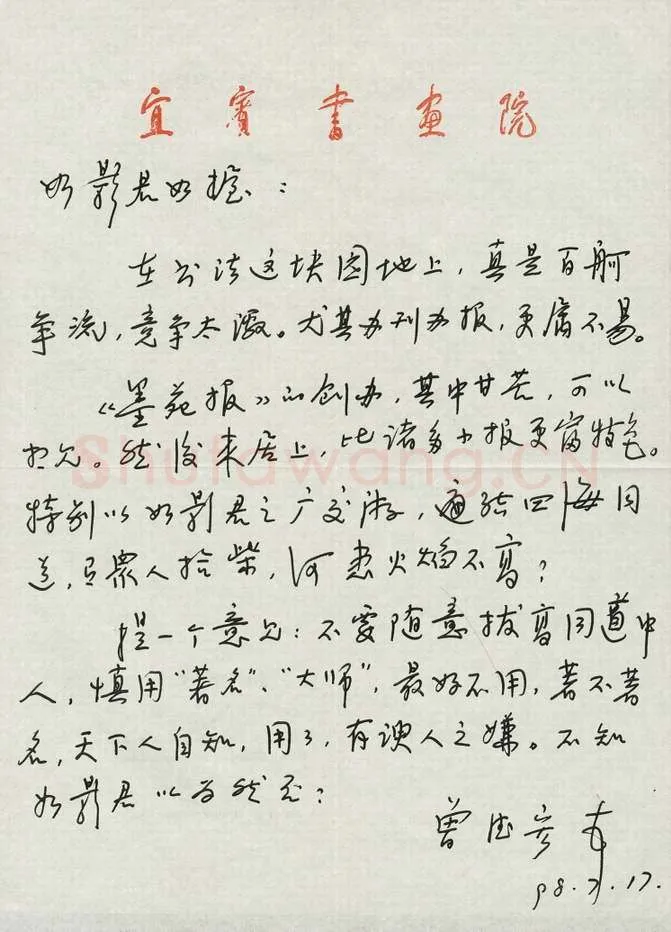 宜賓書畫院
如影君如握：
在书法这块园地上，真是百舸
争流，竞争太激。尤其办刊办报，更属不易。
《墨苑报》的创办，其中甘苦，可以
想见。然后来居上，比诸多小报更富特色。
特别以如影君之广交游，遍结四海同
道，且眾人拾柴，何患火焰不高？
提一个意见：不要随意拔高同道中
人，慎用“著名”、“大师”，最好不用，著不著
名，天下人自知，用了，有谀人之嫌。不知
如影君以为然否？
曾德彦
98.7.17.
Shufawang.CN